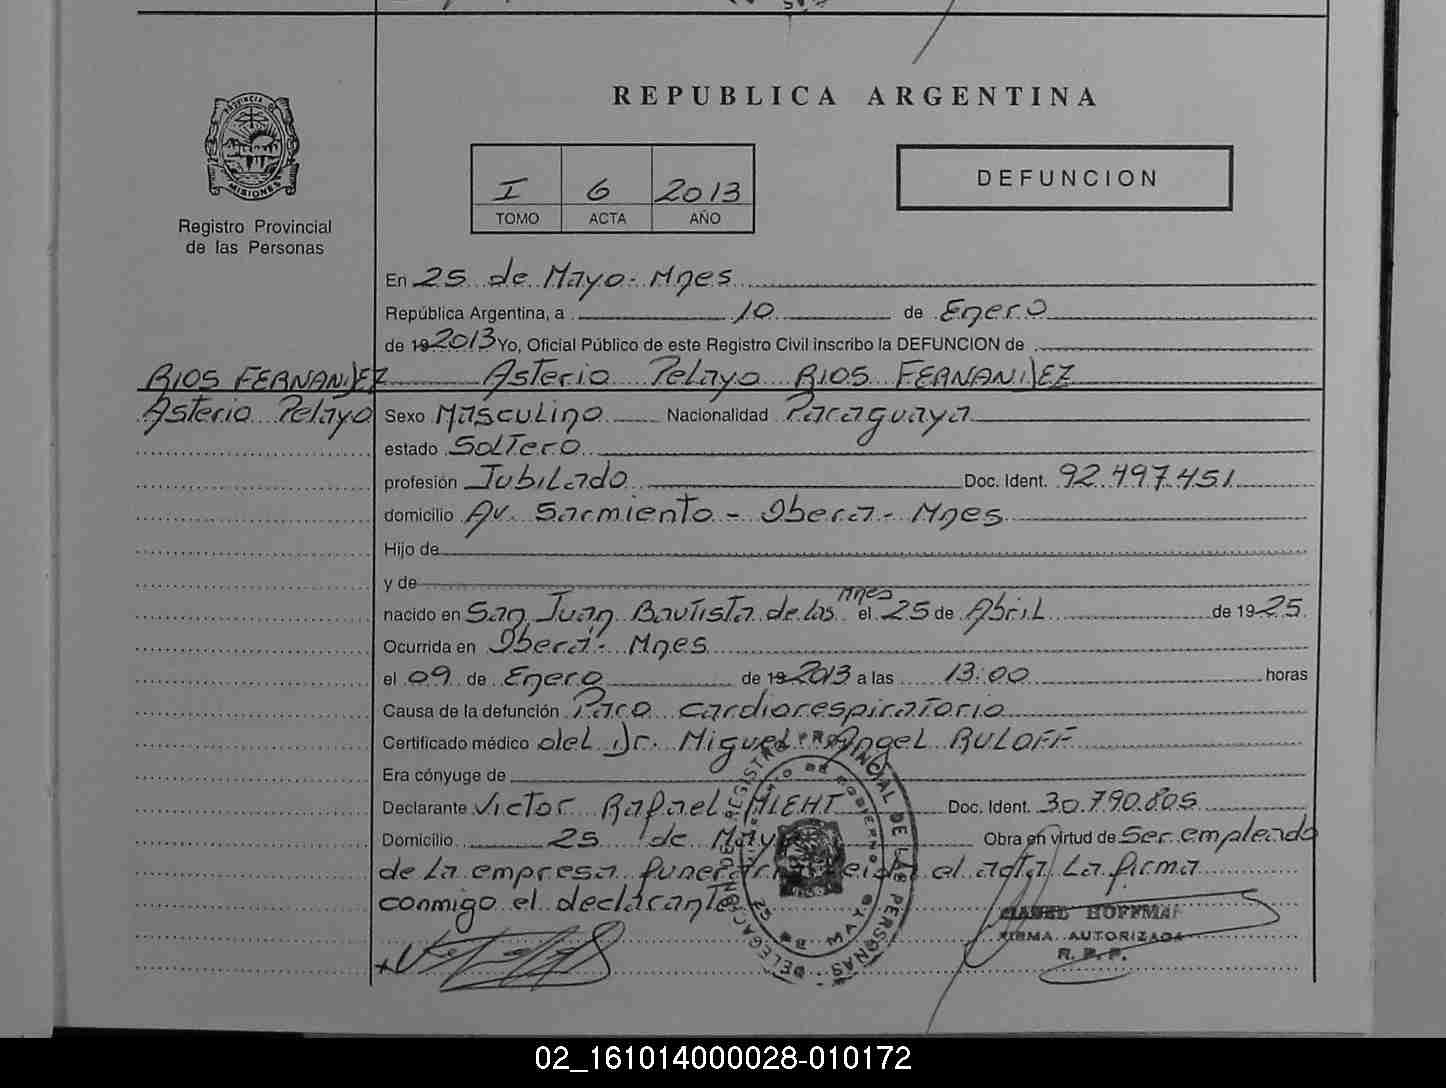 REPUBLICA ARGENTINA
PROVINCIA DE
MISIONES
Registro Provincial
de las Personas
I 6 2013
TOMO ACTA AÑO
DEFUNCION
En 25 de Mayo - Mnes
República Argentina, a 10 de Enero
de 19 2013 Yo, Oficial Público de este Registro Civil inscribo la DEFUNCION de
RIOS FERNANDEZ Asterio Pelayo RIOS FERNANDEZ
Asterio Pelayo Sexo Masculino Nacionalidad Paraguaya
estado Soltero
profesión Jubilado Doc. Ident. 92.497.451
domicilio Av. Sarmiento - Obera - Mnes
Hijo de
y de
nacido en San Juan Bautista de las Mnes el 25 de Abril de 1925
Ocurrida en Oberá - Mnes
el 09 de Enero de 19 2013 a las 13:00 horas
Causa de la defunción Paro cardiorespiratorio
Certificado médico del Dr. Miguel Angel RULOFF
Era cónyuge de
Declarante Victor Rafael Doc. Ident. 30.790.805
Domicilio 25 de Mayo Obra en virtud de Ser empleado
de la empresa funeraria leida el acta La firma
conmigo el declarante
DELEGACION DEL REGISTRO PROVINCIAL DE LAS PERSONAS
MINISTERIO DE GOBIERNO
25 DE MAYO
HOFFMAN
FIRMA AUTORIZADA
R. P. P.
02_161014000028-010172